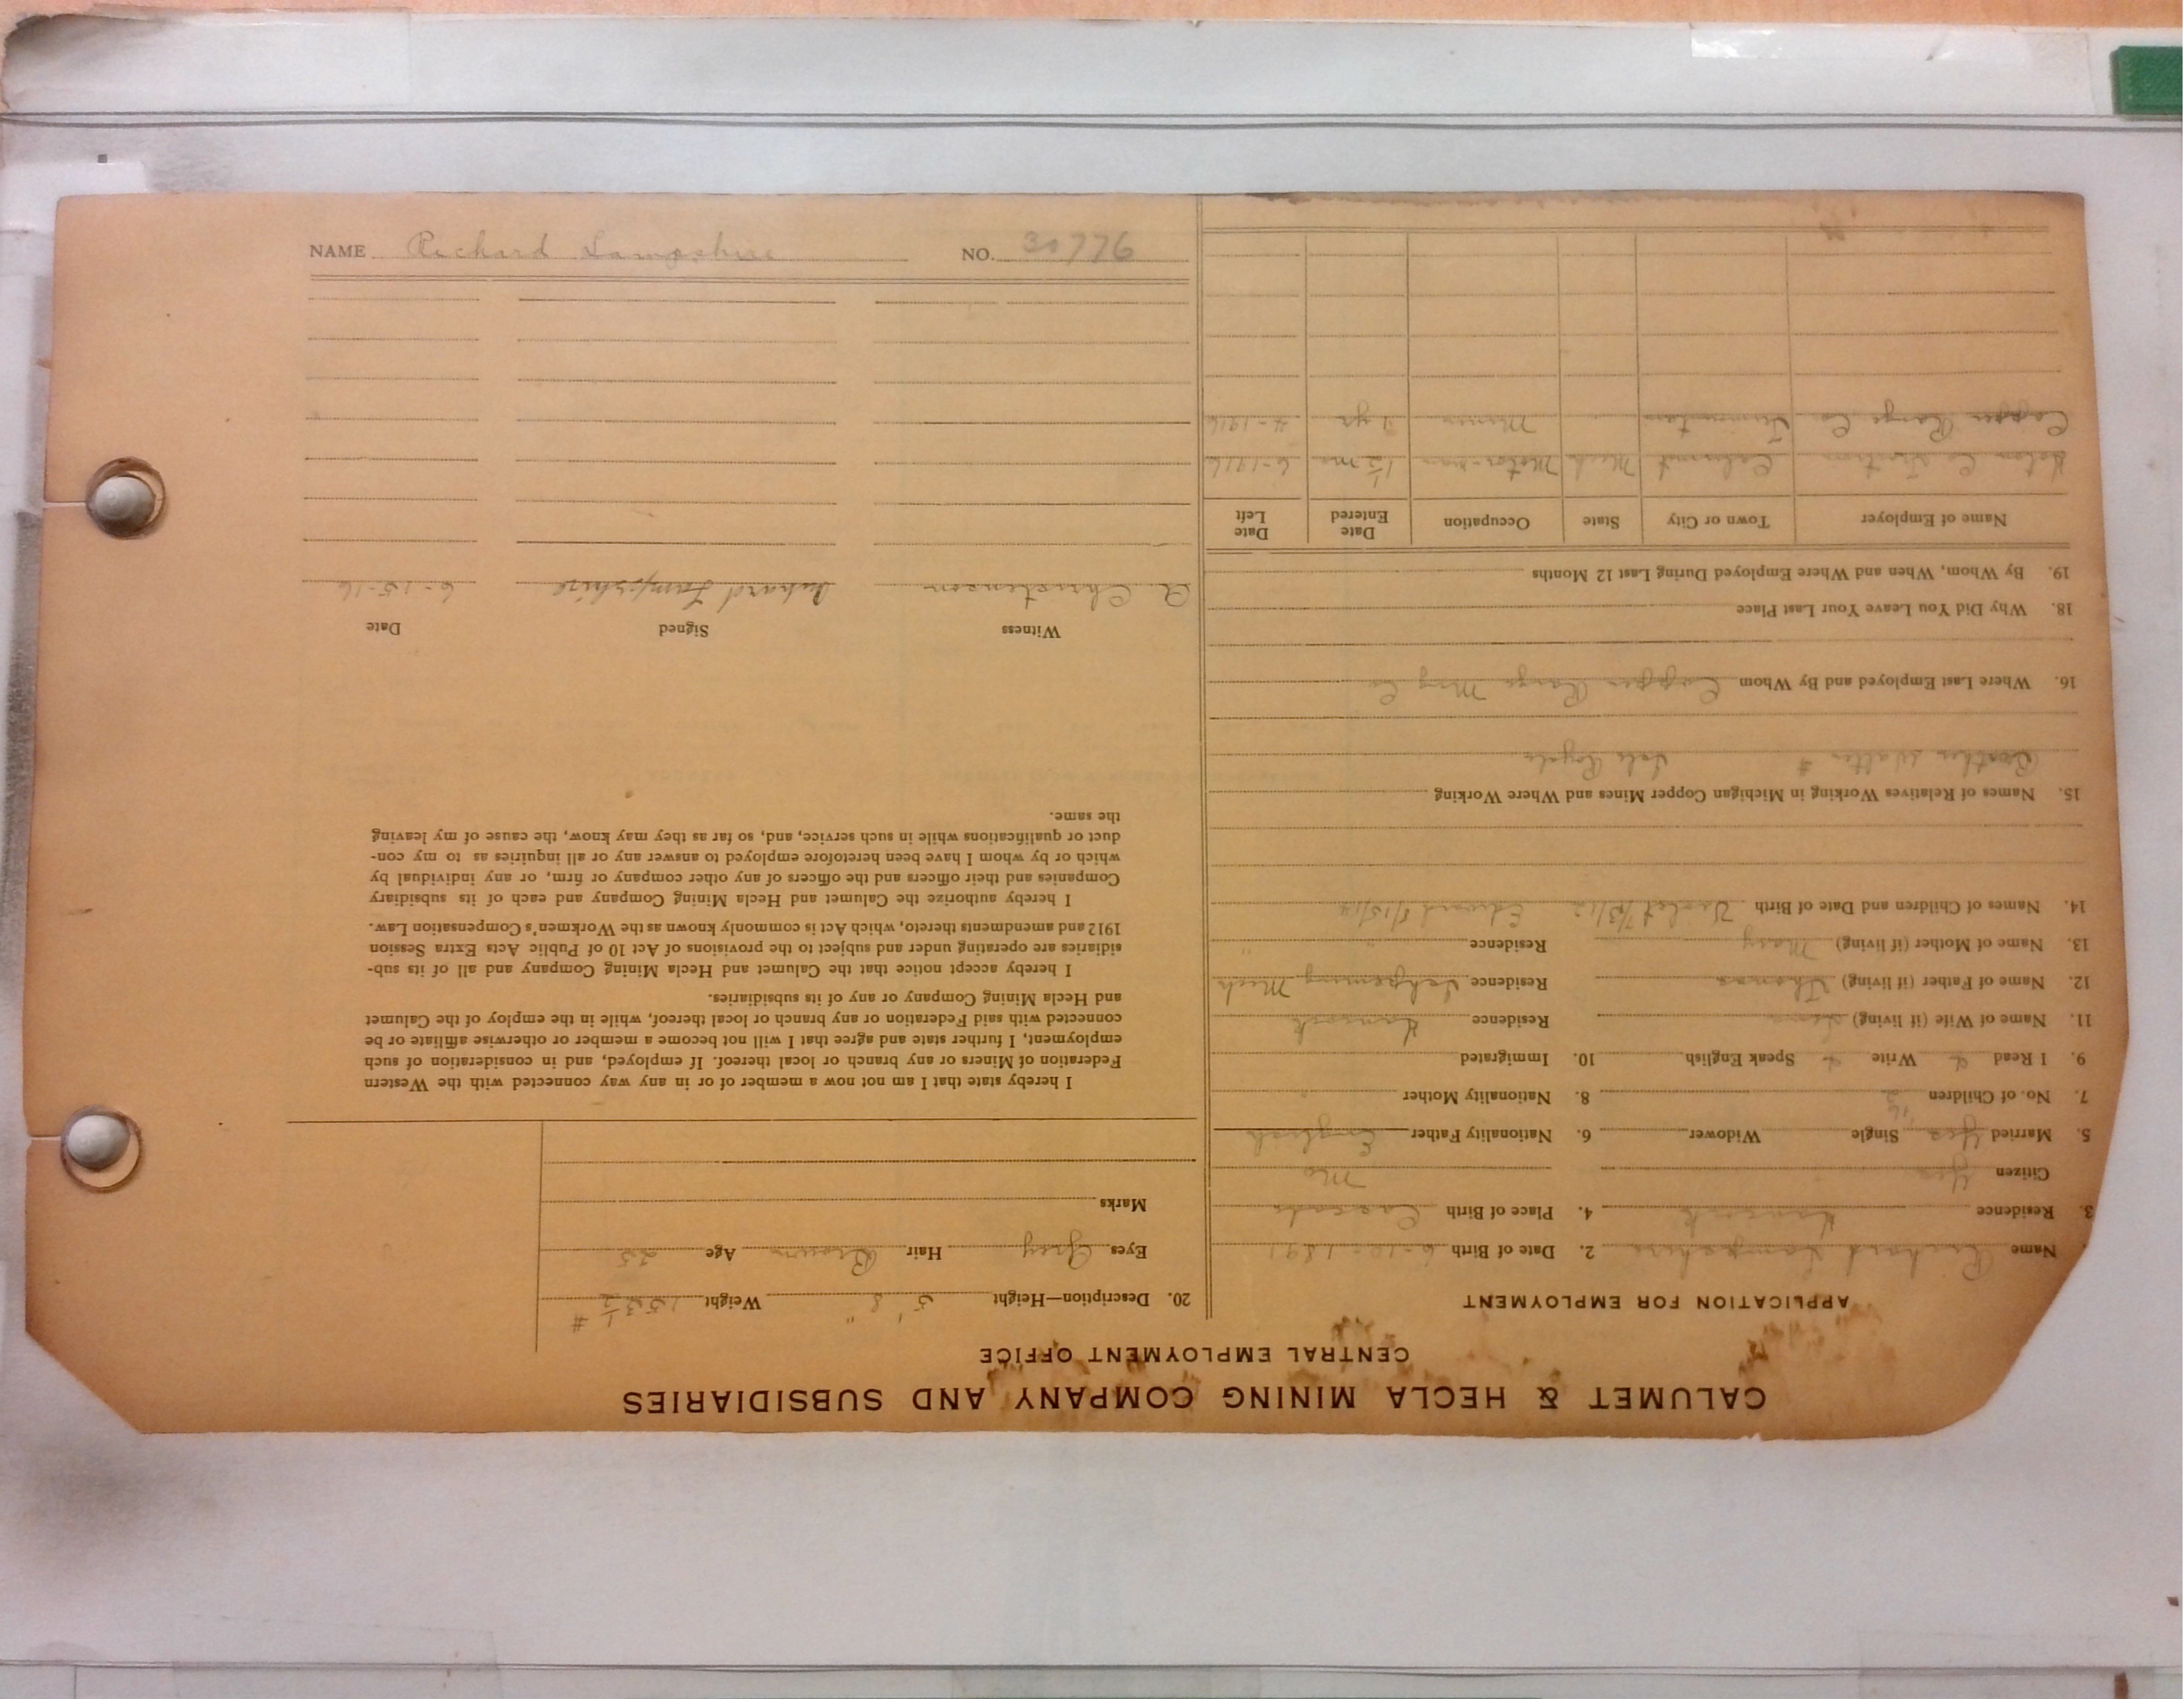 CALUMET & HECLA MINING COMPANY AND SUBSIDIARIES
CENTRAL EMPLOYMENT OFFICE
APPLICATION FOR EMPLOYMENT
Name Richard Lampshire 2. Date of Birth 6-10-1891
3. Residence Hancock 4. Place of Birth Cascade
Citizen Yes
5. Married Yes Single Widower 6. Nationality Father English
7. No. of Children 2 8. Nationality Mother "
9. I Read Write Speak English 10. Immigrated
11. Name of Wife (if living) Residence Hancock
12. Name of Father (if living) Thomas Residence Ishpeming Mich
13. Name of Mother (if living) Mary Residence " "
14. Names of Children and Date of Birth Violet 7/3/12 Edward 8/15/14
15. Names of Relatives Working in Michigan Copper Mines and Where Working
Brother Walter # Isle Royale
16. Where Last Employed and By Whom Copper Range Mng Co
18. Why Did You Leave Your Last Place
19. By Whom, When and Where Employed During Last 12 Months
Name of Employer Town or City State Occupation Date Entered Date Left
Co Traction Calumet Mich Motor-man 1½ mo 6-1916
Copper Range Co Trimountain Miner 1 yr 4-1916
20. Description—Height 5' 8" Weight 153½ #
Eyes Grey Hair Brown Age 25
Marks
I hereby state that I am not now a member of or in any way connected with the Western
Federation of Miners or any branch or local thereof. If employed, and in consideration of such
employment, I further state and agree that I will not become a member or otherwise affiliate or be
connected with said Federation or any branch or local thereof, while in the employ of the Calumet
and Hecla Mining Company or any of its subsidiaries.
I hereby accept notice that the Calumet and Hecla Mining Company and all of its sub-
sidiaries are operating under and subject to the provisions of Act 10 of Public Acts Extra Session
1912 and amendments thereto, which Act is commonly known as the Workmen's Compensation Law.
I hereby authorize the Calumet and Hecla Mining Company and each of its subsidiary
Companies and their officers and the officers of any other company or firm, or any individual by
which or by whom I have been heretofore employed to answer any or all inquiries as to my con-
duct or qualifications while in such service, and, so far as they may know, the cause of my leaving
the same.
Witness Signed Date
A Christenson Richard Lampshire 6-15-16
NAME Richard Lampshire NO. 30776